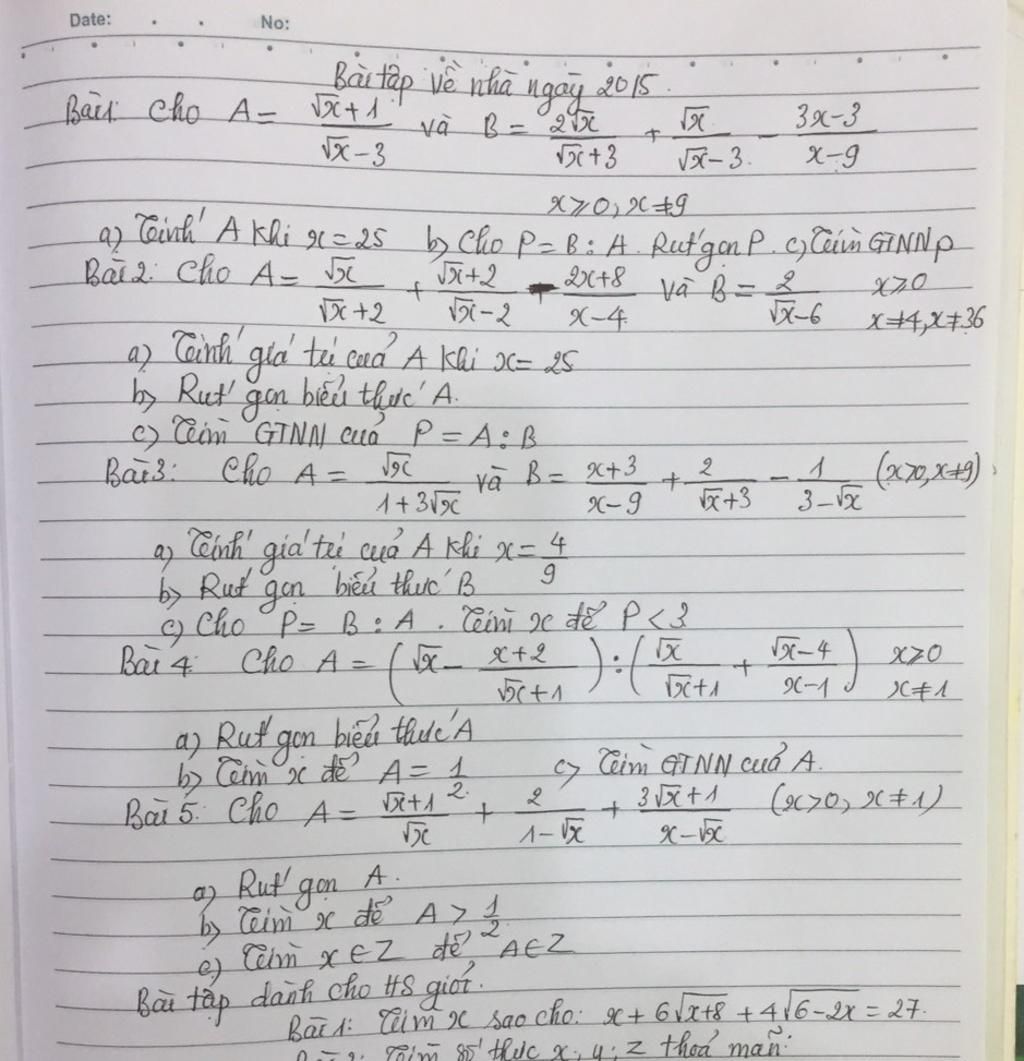 Date: . . No:
Bài tập về nhà ngày 2015.
Bài 1: Cho A = (√x + 1)/(√x - 3) và B = 2√x/(√x + 3) + √x/(√x - 3) - (3x - 3)/(x - 9)
x ≥ 0, x ≠ 9
a) Tính A khi x = 25 b) Cho P = B : A. Rút gọn P. c) Tìm GTNN P
Bài 2: Cho A = √x/(√x + 2) + (√x + 2)/(√x - 2) - (2x + 8)/(x - 4) và B = 2/(√x - 6) x ≥ 0
x ≠ 4, x ≠ 36
a) Tính giá trị của A khi x = 25
b) Rút gọn biểu thức A.
c) Tìm GTNN của P = A : B
Bài 3: Cho A = √x/(1 + 3√x) và B = (x + 3)/(x - 9) + 2/(√x + 3) - 1/(3 - √x) (x > 0, x ≠ 9)
a) Tính giá trị của A khi x = 4/9
b) Rút gọn biểu thức B
c) Cho P = B : A. Tìm x để P < 3
Bài 4: Cho A = (√x - (x + 2)/(√x + 1)) : (√x/(√x + 1) + (√x - 4)/(x - 1)) x ≥ 0
x ≠ 1
a) Rút gọn biểu thức A
b) Tìm x để A = 1/2. c) Tìm GTNN của A.
Bài 5: Cho A = (√x + 1)/√x + 2/(1 - √x) + (3√x + 1)/(x - √x) (x > 0, x ≠ 1)
a) Rút gọn A.
b) Tìm x để A > 1/2
c) Tìm x ∈ Z để A ∈ Z
Bài tập dành cho HS giỏi.
Bài 1: Tìm x sao cho: x + 6√(x + 8) + 4√(6 - 2x) = 27.
Bài 2: Tìm số thực x; y; z thoả mãn: